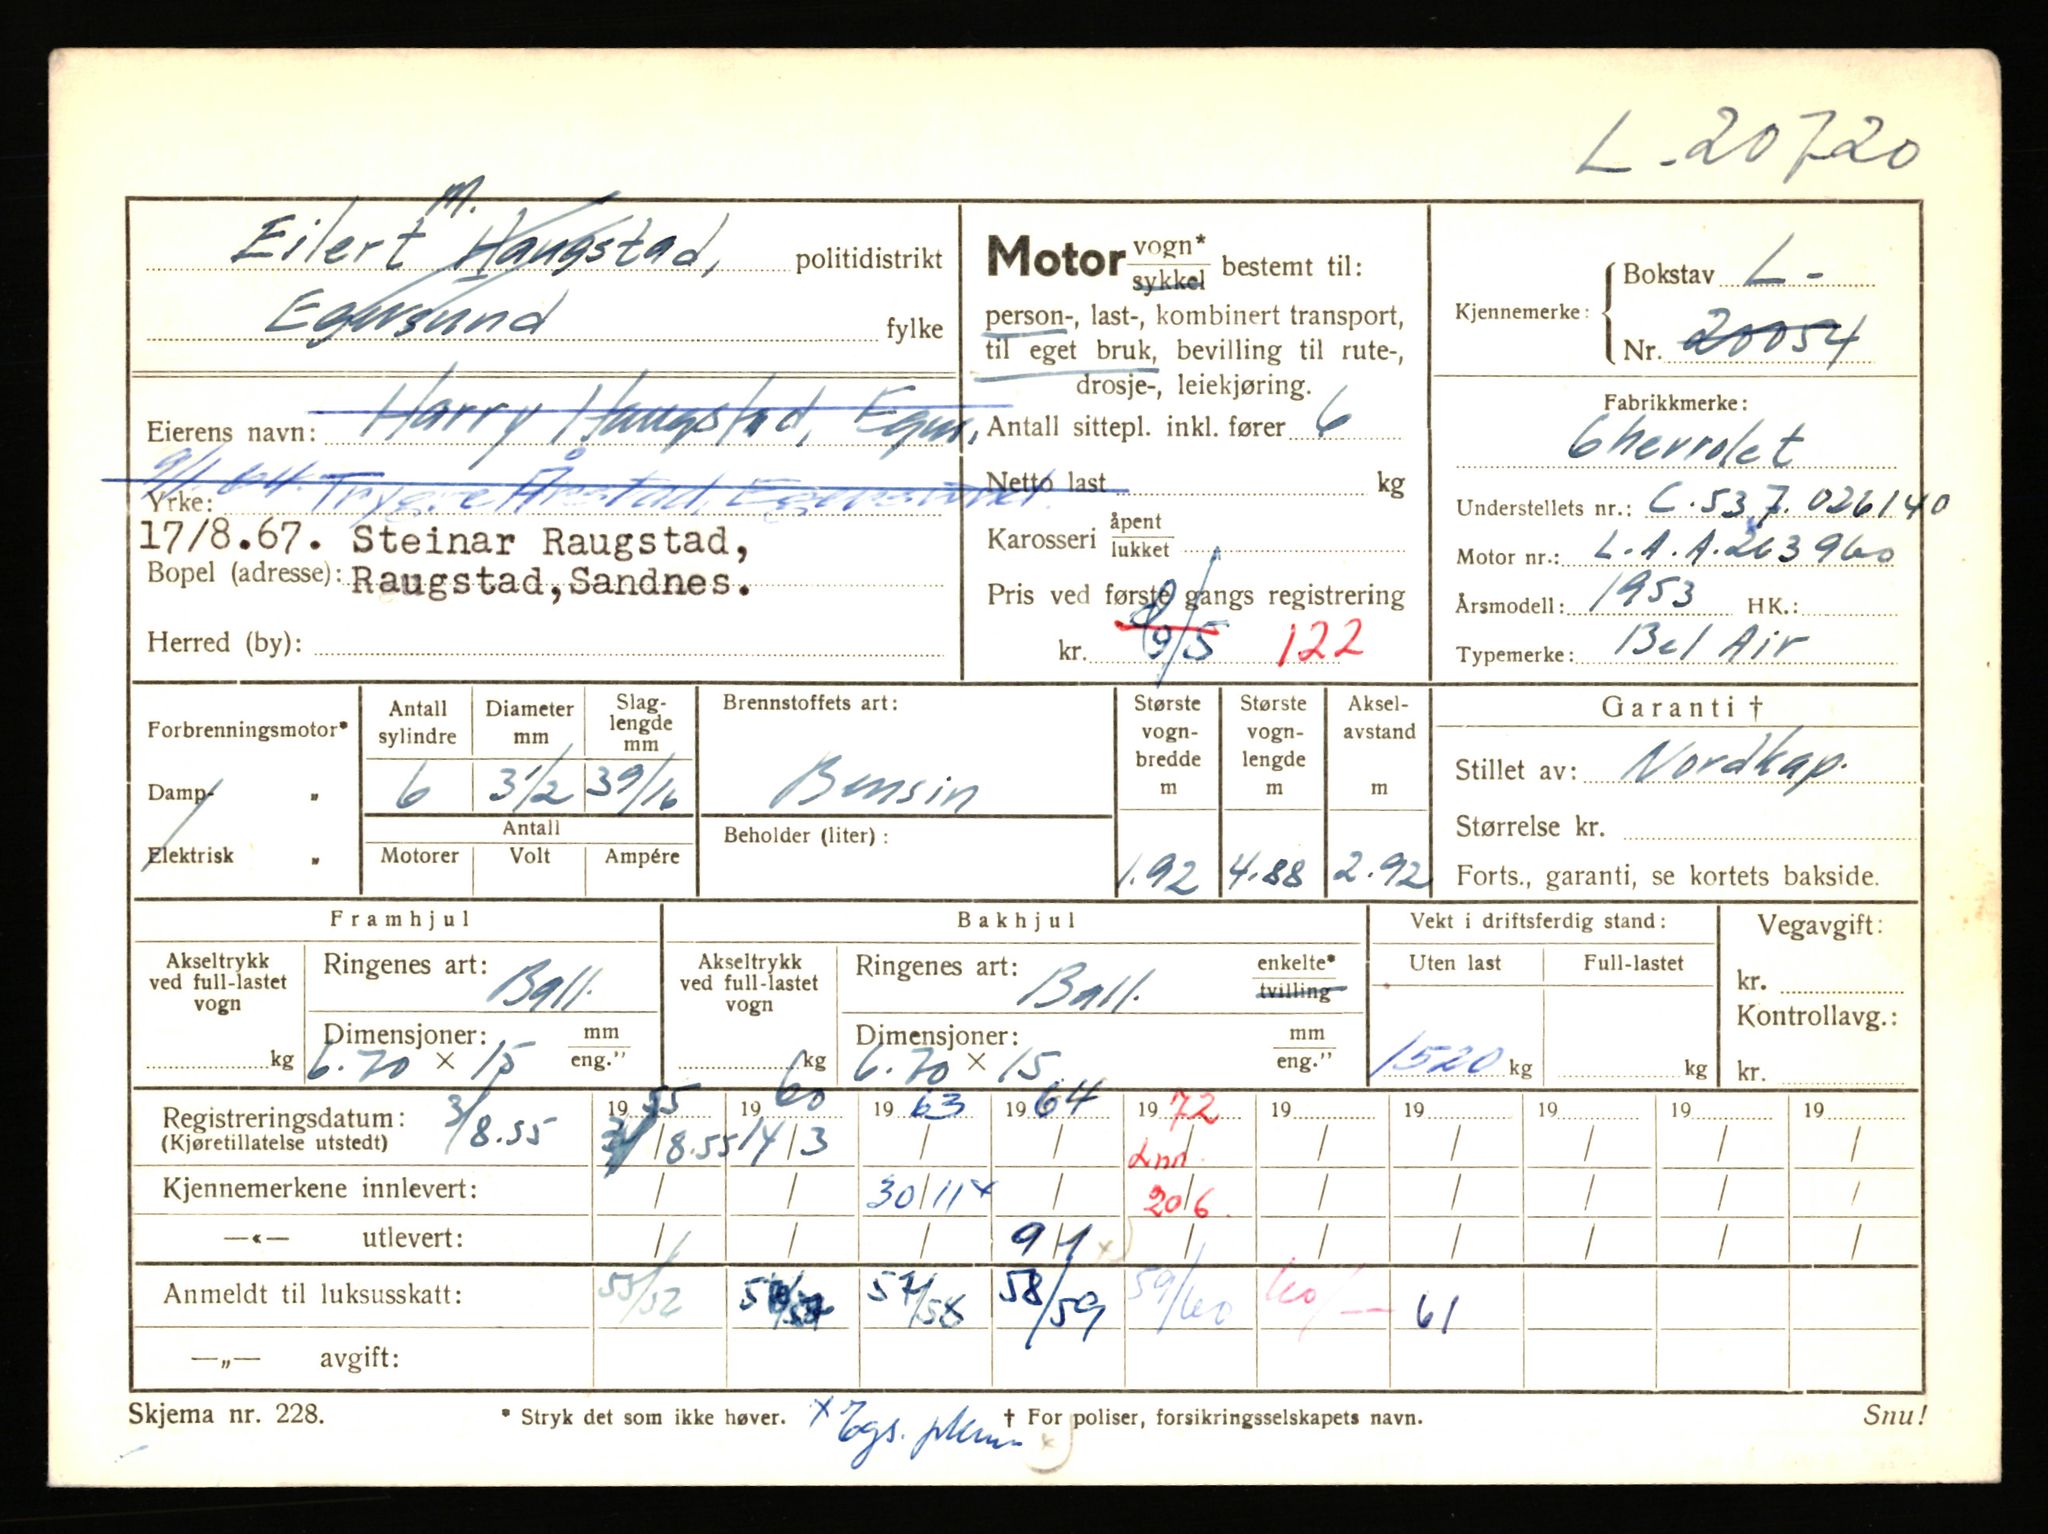 L - 20720
M.
Eilert Haugstad, politidistrikt
Egersund fylke
Eierens navn: Harry Haugstad, Egers,
Yrke: 9/1.64. Trygve Årstad, Egersund.
17/8.67. Steinar Raugstad,
Bopel (adresse): Raugstad,Sandnes.
Herred (by):
Motor vogn* sykkel bestemt til:
person-, last-, kombinert transport,
til eget bruk, bevilling til rute-,
drosje-, leiekjøring.
Antall sittepl. inkl. fører 6
Netto last kg
Karosseri åpent lukket
Pris ved første gangs registrering
kr. 9/5 122
Kjennemerke: Bokstav L-
Nr. 20054
Fabrikkmerke:
Chevrolet
Understellets nr.: C.537.026140
Motor nr.: L.A.A.263960
Årsmodell: 1953 HK.:
Typemerke: Bel Air
Forbrenningsmotor*
Damp- "
Elektrisk "
Antall sylindre 6
Diameter mm 3 1/2
Slaglengde mm 3 9/16
Antall
Motorer Volt Ampére
Brennstoffets art:
Bensin
Beholder (liter):
Største vognbredde m 1.92
Største vognlengde m 4.88
Akselavstand m 2.92
Garanti †
Stillet av: Nordkap.
Størrelse kr.
Forts., garanti, se kortets bakside.
Framhjul
Akseltrykk ved full-lastet vogn kg
Ringenes art: Ball.
Dimensjoner: mm eng."
6.70 × 15
Bakhjul
Akseltrykk ved full-lastet vogn kg
Ringenes art: Ball. enkelte* tvilling
Dimensjoner: mm eng."
6.70 × 15
Vekt i driftsferdig stand:
Uten last Full-lastet
1520 kg kg
Vegavgift:
kr.
Kontrollavg.:
kr.
Registreringsdatum: 3/8.55 19 55 19 60 19 63 19 64 19 72 19 19 19 19 19
(Kjøretillatelse utstedt) 3/8.55 14/3 / / Inn. / / / / /
Kjennemerkene innlevert: / / 30/11 x / 20/6. / / / / /
—«— utlevert: / / / 9/1 x / / / / / /
Anmeldt til luksusskatt: 55/52 57/58 58/59 59/60 60/— 61
—„— avgift:
Skjema nr. 228. * Stryk det som ikke høver. † For poliser, forsikringsselskapets navn. Snu!